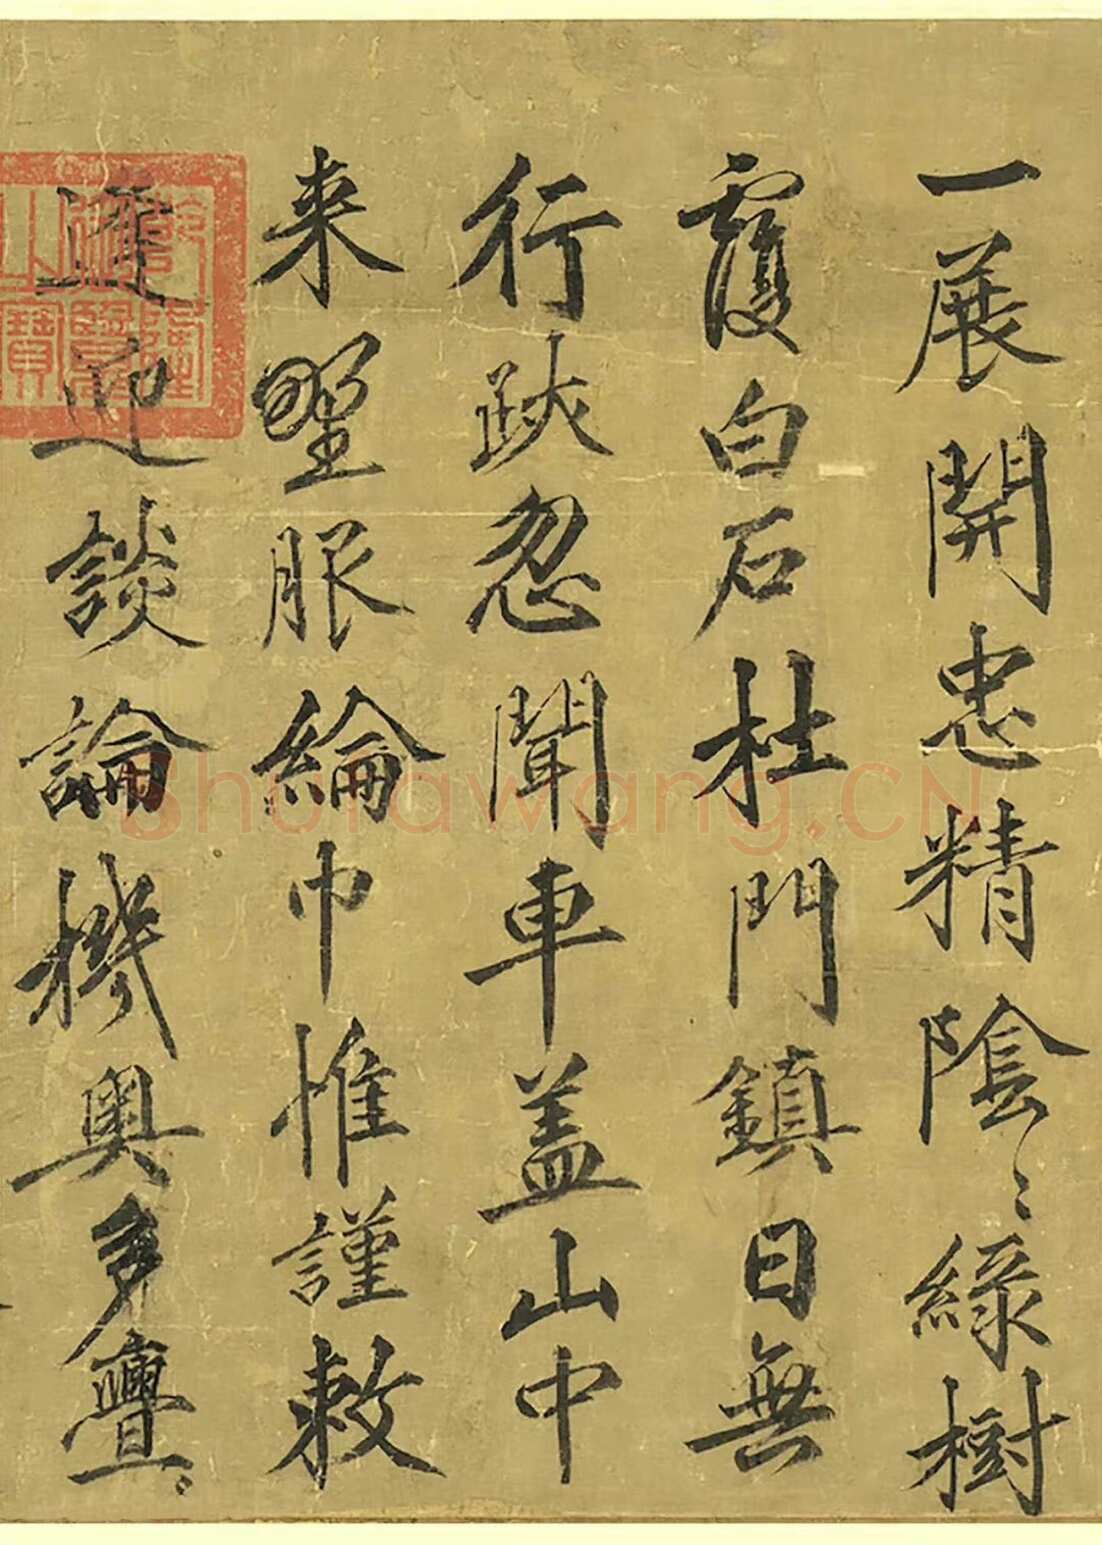 一展開忠精陰〻綠樹
覆白石杜門鎮日無
行跡忽聞車盖山中
来野服綸巾惟謹敕
逢迎談論機奥多亹〻
Shufawang.CN